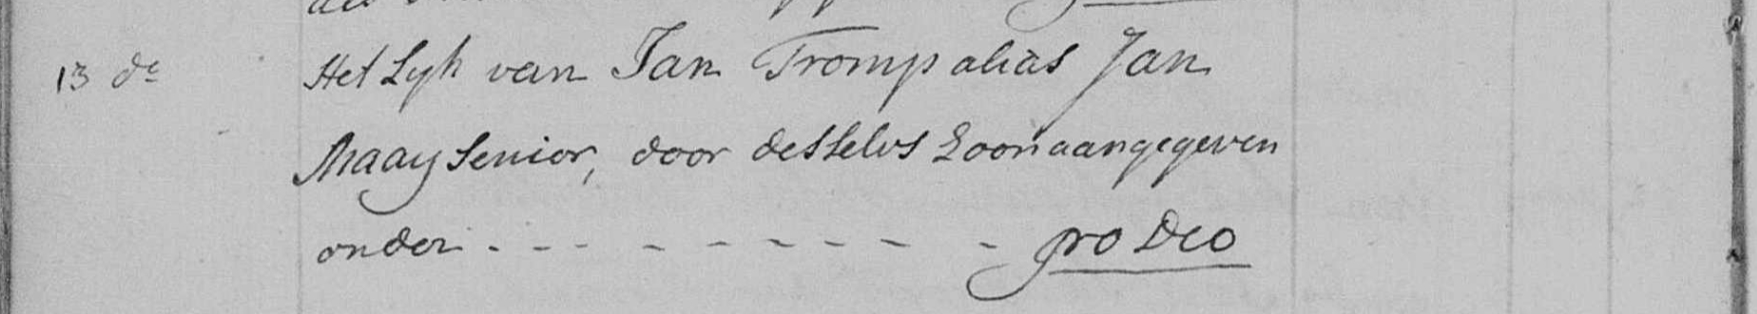 13 de Het Lyk van Jan Tromp alias Jan
Maay Senior, door desselvs Zoon aangegeven
onder - - - - - - - - - pro Deo